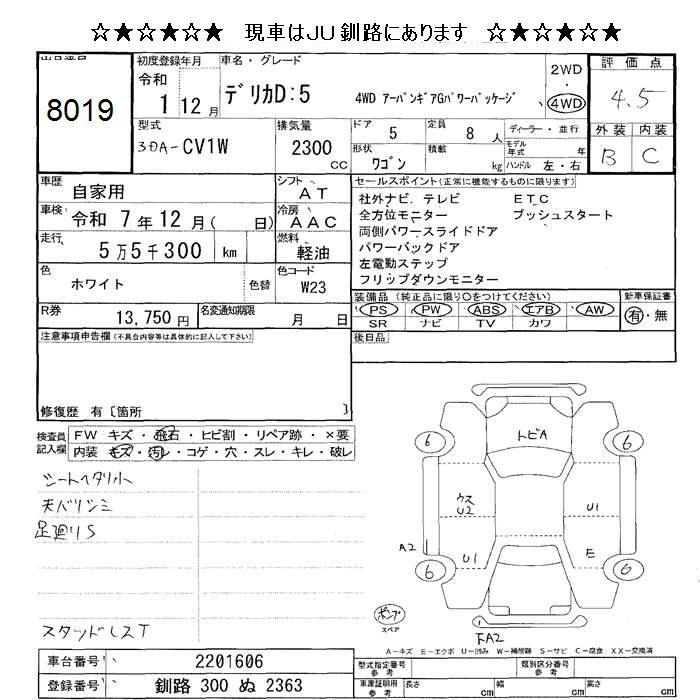 ☆★☆★☆ 現車はJU釧路にあります ☆★☆★☆
出品番号
8019
初度登録年月
令和
1 12月
車名・グレード
デリカD:5 4WD アーバンギアGパワーパッケージ
2WD
・
4WD
評価点
4.5
外装 内装
B C
型式
3DA-CV1W
排気量
2300
cc
ドア
5
定員
8 人
ディーラー・並行
モデル年式 年
形状
ワゴン
積載
kg
ハンドル 左・右
車歴
自家用
シフト
AT
車検
令和 7年12月( 日)
冷房
AAC
走行
5万5千300 km
燃料
軽油
色
ホワイト
色替
色コード
W23
R券
13,750円
名変通知期限
月 日
セールスポイント(正常に機能するものに限ります)
社外ナビ.テレビ ETC
全方位モニター プッシュスタート
両側パワースライドドア
パワーバックドア
左電動ステップ
フリップダウンモニター
装備品(純正品に限り○をつけてください)
PS PW ABS エアB AW
SR ナビ TV カワ
新車保証書
有・無
後日品
注意事項申告欄(不具合内容等は具体的に記入して下さい)
修復歴 有〔箇所 〕
検査員記入欄
FW キズ・飛石・ヒビ割・リペア跡・×要
内装 キズ・汚レ・コゲ・穴・スレ・キレ・破レ
シートヘタリ小
天バリシミ
足廻りS
スタッドレスT
トビA
6
6
ウス
U2
U1
A2
U1
E
6
6
ポンプ
スペア
下A2
A-キズ E-エクボ U-凹み W-補修跡 S-サビ C-腐食 XX-交換済
車台番号
2201606
登録番号
釧路 300 ぬ 2363
型式指定番号
参考
類別区分番号
参考
車庫証明用
参考
長さ cm
幅 cm
高さ cm